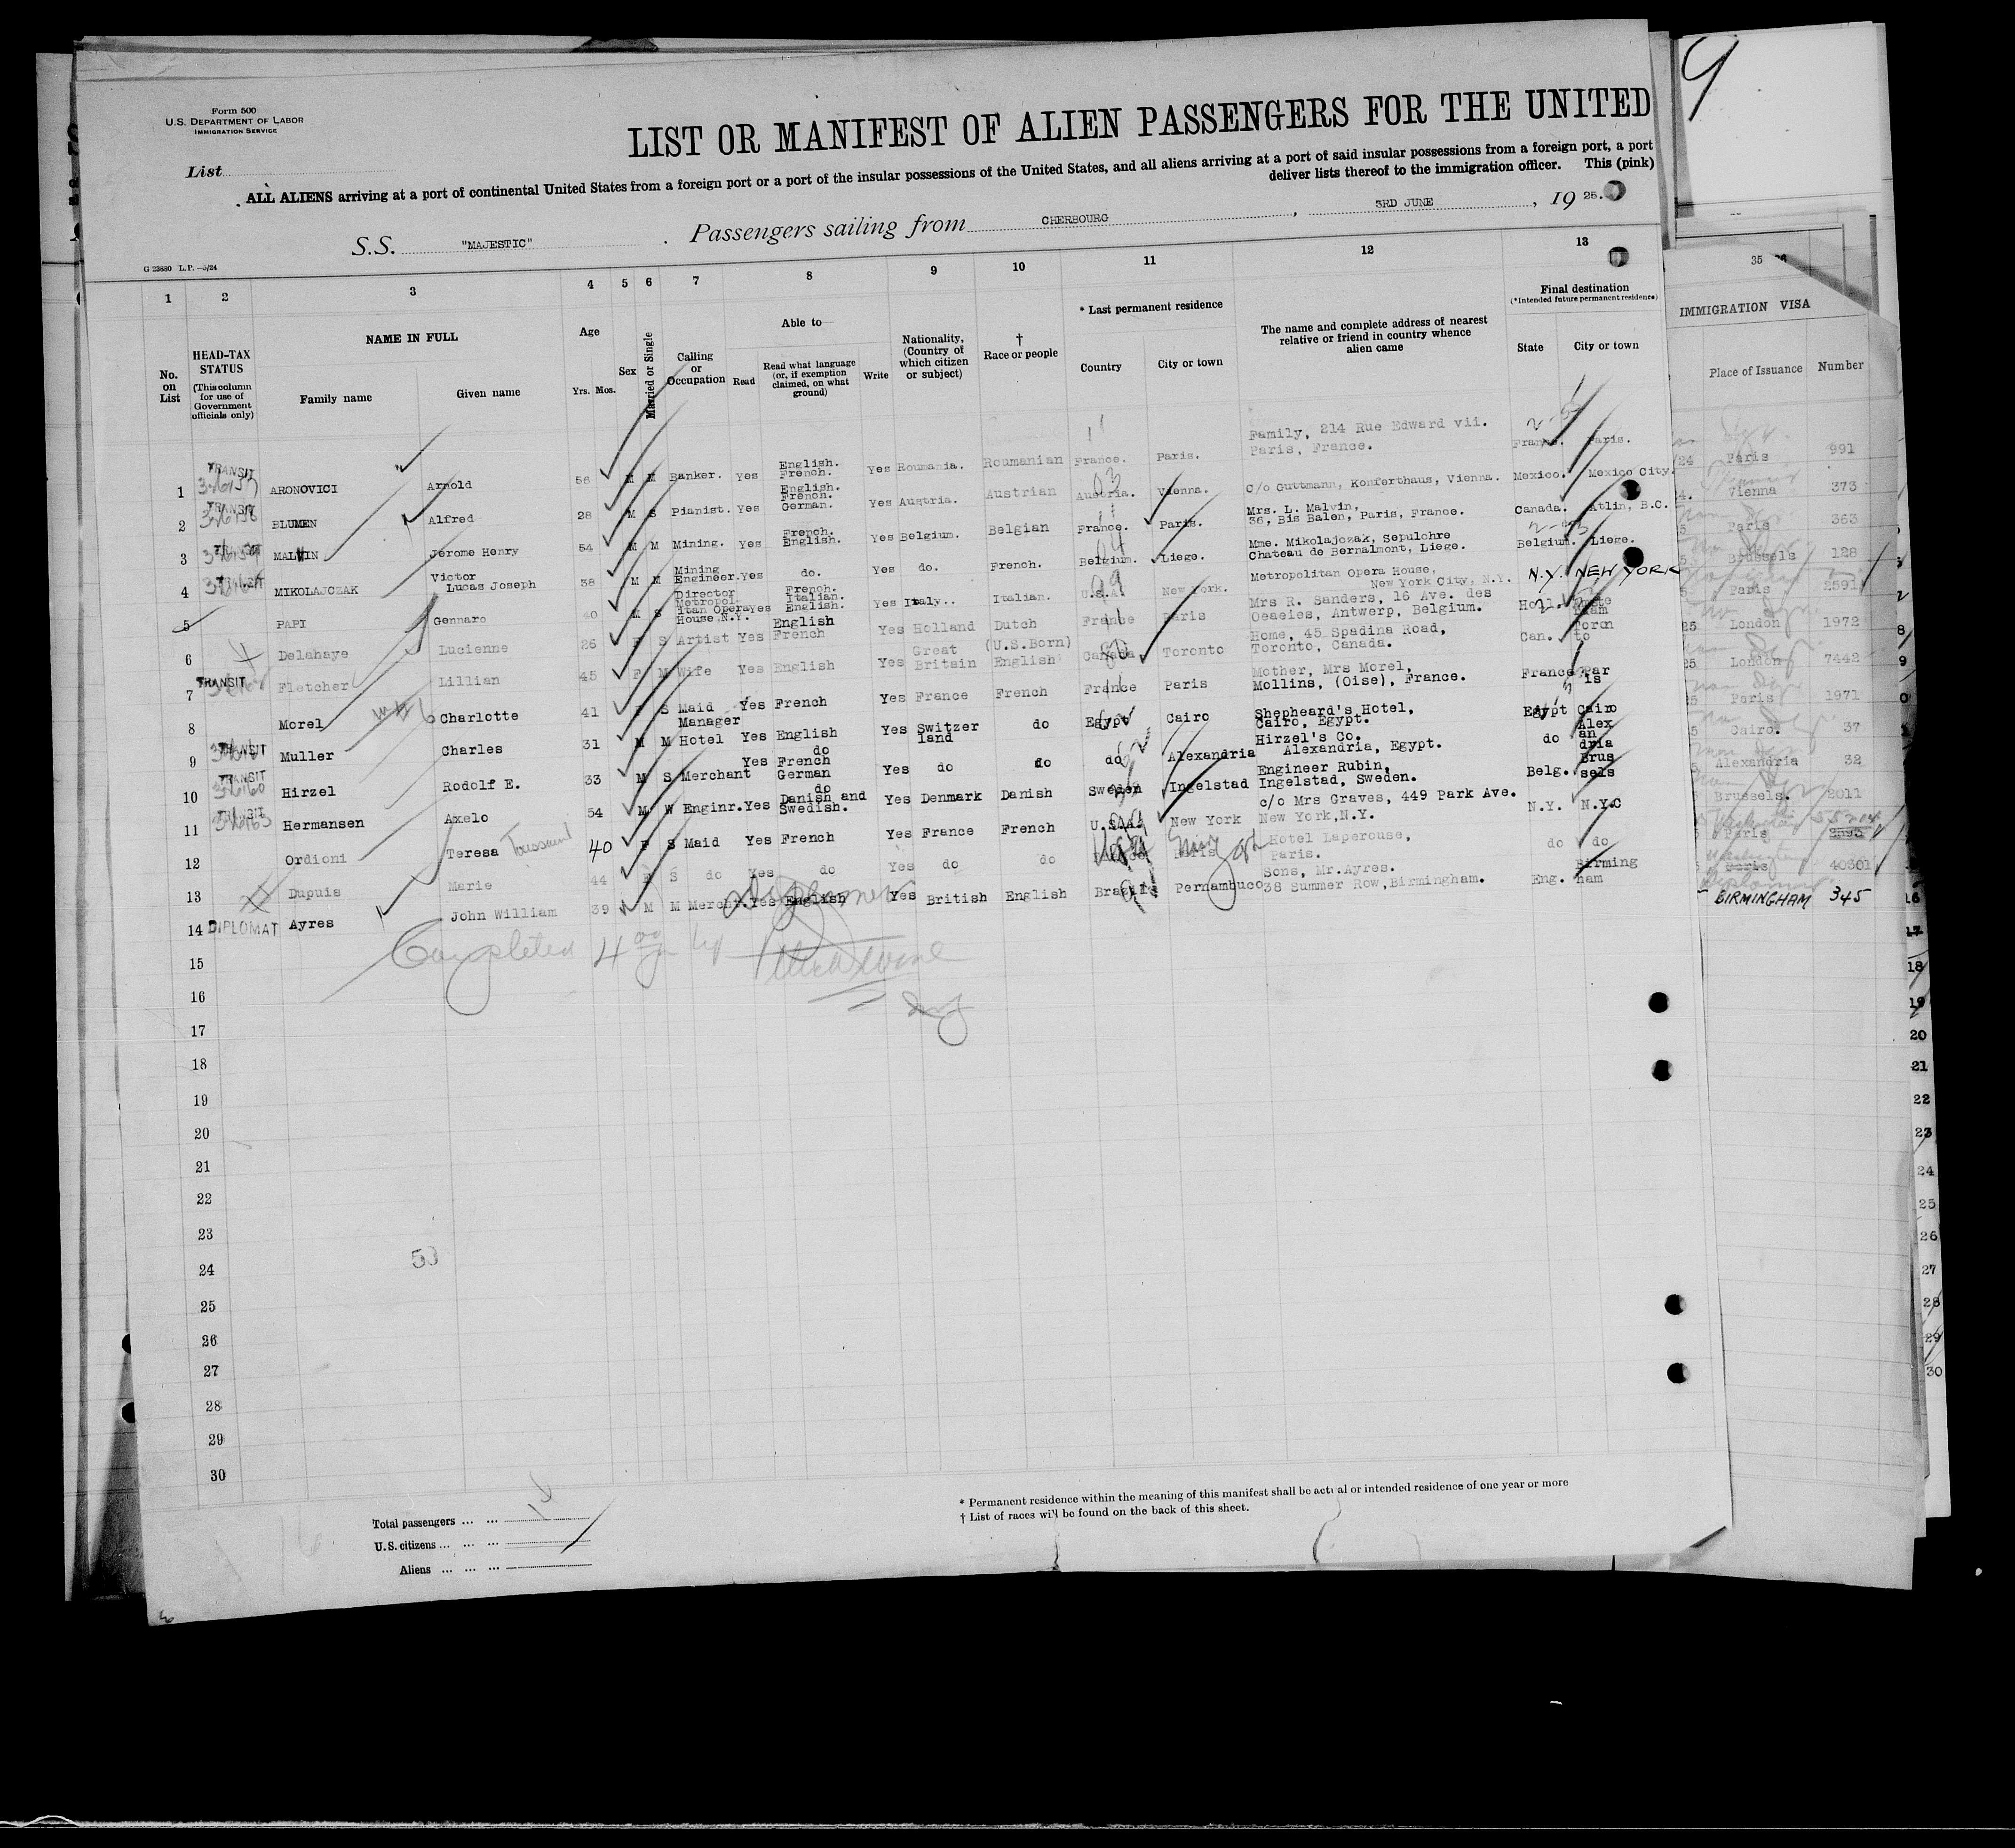 Form 500
U.S. DEPARTMENT OF LABOR
IMMIGRATION SERVICE
LIST OR MANIFEST OF ALIEN PASSENGERS FOR THE UNITED
List
ALL ALIENS arriving at a port of continental United States from a foreign port or a port of the insular possessions of the United States, and all aliens arriving at a port of said insular possessions from a foreign port, a port
deliver lists thereof to the immigration officer. This (pink)
S.S. "MAJESTIC" . Passengers sailing from CHERBOURG , 3RD JUNE , 19 25.
G 23880 L.P.—5/24
1 2 3 4 5 6 7 8 9 10 11 12 13 35
No. on List
HEAD-TAX STATUS
(This column for use of Government officials only)
NAME IN FULL
Family name Given name
Age
Yrs. Mos.
Sex
Married or Single
Calling or Occupation
Able to
Read
Read what language (or, if exemption claimed, on what ground)
Write
Nationality, (Country of which citizen or subject)
† Race or people
* Last permanent residence
Country City or town
The name and complete address of nearest relative or friend in country whence alien came
Final destination
(*Intended future permanent residence)
State City or town
IMMIGRATION VISA
Place of Issuance Number
1 TRANSIT ARONOVICI Arnold 56 M M Banker. Yes English. French. Yes Roumania. Roumanian France. Paris. Family, 214 Rue Edward vii. Paris, France. France. Paris. Paris 991
2 TRANSIT BLUMEN Alfred 28 M S Pianist. Yes English. French. German. Yes Austria. Austrian Austria. Vienna. c/o Guttmann, Komferthaus, Vienna. Mexico. Mexico City. Vienna 373
3 TRANSIT MALVIN Jerome Henry 54 M M Mining. Yes French. English. Yes Belgium. Belgian France. Paris. Mrs. L. Malvin, 36, Bis Balen, Paris, France. Canada. Atlin, B.C. Paris 363
4 TRANSIT MIKOLAJCZAK Victor Lucas Joseph 38 M M Mining Engineer. Yes do. Yes do. French. Belgium. Liege. Mme. Mikolajczak, Sepulchre Chateau de Bernalmont, Liege. Belgium. Liege. Brussels 128
5 PAPI Gennaro 40 M S Director Metropol- itan Opera House, N.Y. Yes French. Italian. English. Yes Italy.. Italian. U.S.A. New York. Metropolitan Opera House, New York City, N.Y. N.Y. NEW YORK Paris 2591
6 Delahaye Lucienne 26 F S Artist Yes English French Yes Holland Dutch France Paris Mrs R. Sanders, 16 Ave. des Oeaeies, Antwerp, Belgium. Holl. London 1972
7 TRANSIT Fletcher Lillian 45 F M Wife Yes English Yes Great Britain (U.S.Born) English Canada Toronto Home, 45 Spadina Road, Toronto, Canada. Can. Toron to London 7442
8 Morel Charlotte 41 F S Maid Yes French Yes France French France Paris Mother, Mrs Morel, Mollins, (Oise), France. France Par is Paris 1971
9 TRANSIT Muller Charles 31 M M Manager Hotel Yes English Yes Switzer land do Egypt Cairo Shepheard's Hotel, Cairo, Egypt. Egypt Cairo Cairo. 37
10 TRANSIT Hirzel Rodolf E. 33 M S Merchant Yes do French German Yes do do do Alexandria Hirzel's Co. Alexandria, Egypt. do Alex an dria Alexandria 32
11 TRANSIT Hermansen Axelo 54 M W Enginr. Yes do Danish and Swedish. Yes Denmark Danish Sweden Ingelstad Engineer Rubin, Ingelstad, Sweden. Belg. Brus sels Brussels. 2011
12 Ordioni Teresa Toussaint 40 F S Maid Yes French Yes France French U.S.A. New York c/o Mrs Graves, 449 Park Ave. New York,N.Y. N.Y. N.Y.C Paris
13 Dupuis Marie 44 F S do Yes do Yes do do Paris Hotel Laperouse, Paris. do do Paris 40301
14 DIPLOMAT Ayres John William 39 M M Mercht. Yes English Yes British English Brazil Pernambuco Sons, Mr.Ayres. 38 Summer Row,Birmingham. Eng. Birming ham BIRMINGHAM 345
15 Completed 4
16
17
18
19
20
21
22
23
24 53
25
26
27
28
29
30
Total passengers ... ...
U.S. citizens ... ... ...
Aliens ... ... ...
* Permanent residence within the meaning of this manifest shall be actual or intended residence of one year or more
† List of races will be found on the back of this sheet.
9
17
18
19
20
21
22
23
24
25
26
27
28
29
30